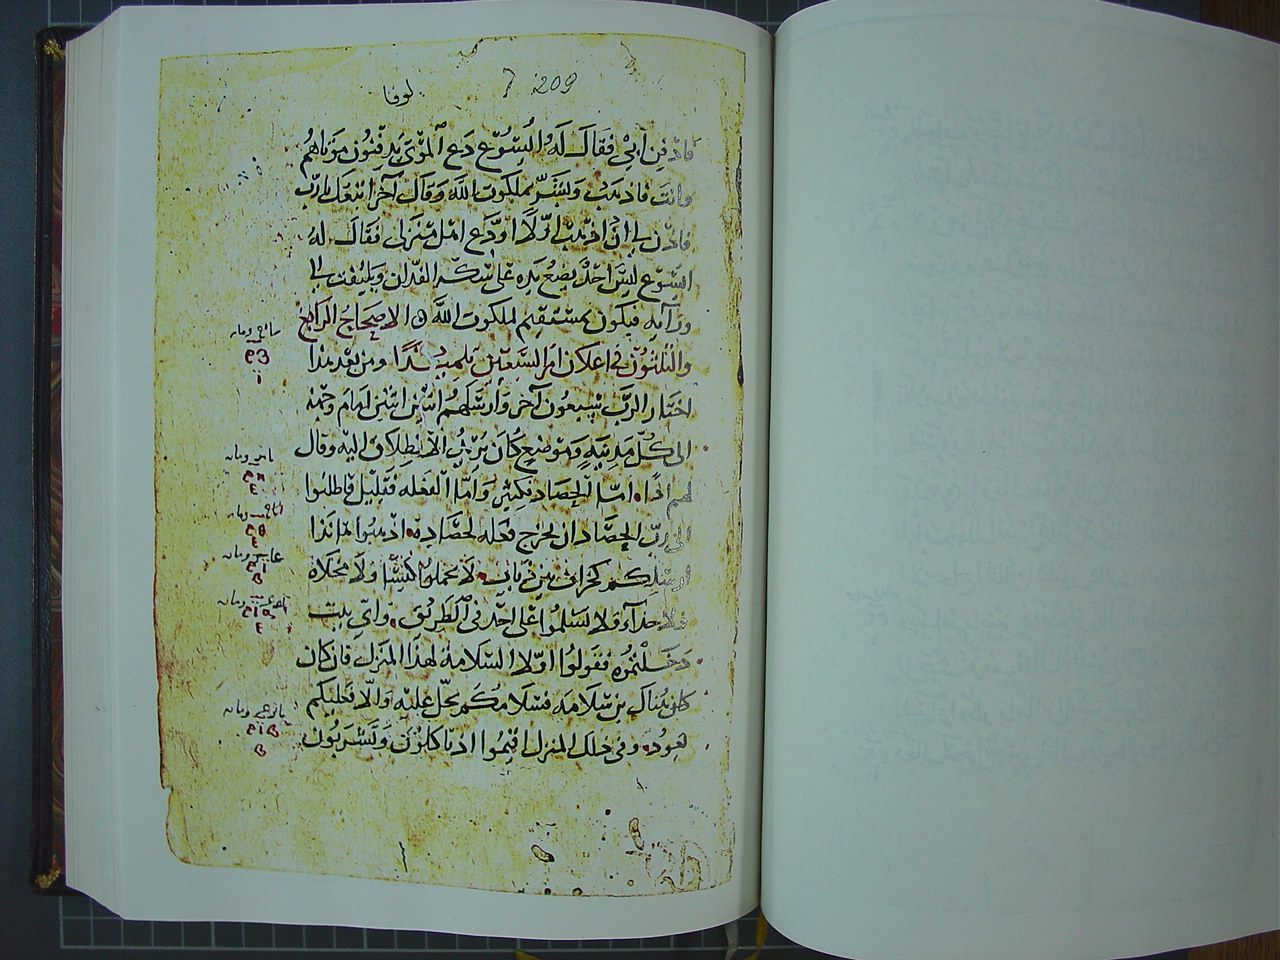 لوقا
209
فادفن ابي فقال له ايسوع دع الموتى يدفنون موتاهم
وانت فاذهب وبشر بملكوت الله وقال آخر اتبعك يا رب
فاذن لي ان اذهب اولا اودع اهل منزلي فقال له
ايسوع ليس احد يضع يده على سكة الفدان ويلتفت الى
ورآيه فيكون بمستقيم لملكوت الله الاصحاح الرابع
والثلثون في اعلان امر السبعين تلميذا ومن بعد هذا
اختار الرب سبعون آخر وارسلهم اثنين اثنين امام وجهه
الى كل مدينة وموضع كان يريد الانطلاق اليه وقال
لهم اما الحصاد فكثير واما الفعله فقليل فاطلبوا
الى رب الحصاد ان يخرج فعله لحصاده اذهبوا ها انذا
ارسلكم كخراف بين ذياب لا تحملوا كيسا ولا مخلاة
ولا حذآء ولا تسلموا على احد في الطريق واي بيت
دخلتموه فقولوا اولا السلامة لهذا المنزل فان كان
هناك بن سلامه فسلامكم يحل عليه والا فعليكم
تعود وفي ذلك المنزل اقيموا تاكلون وتشربون